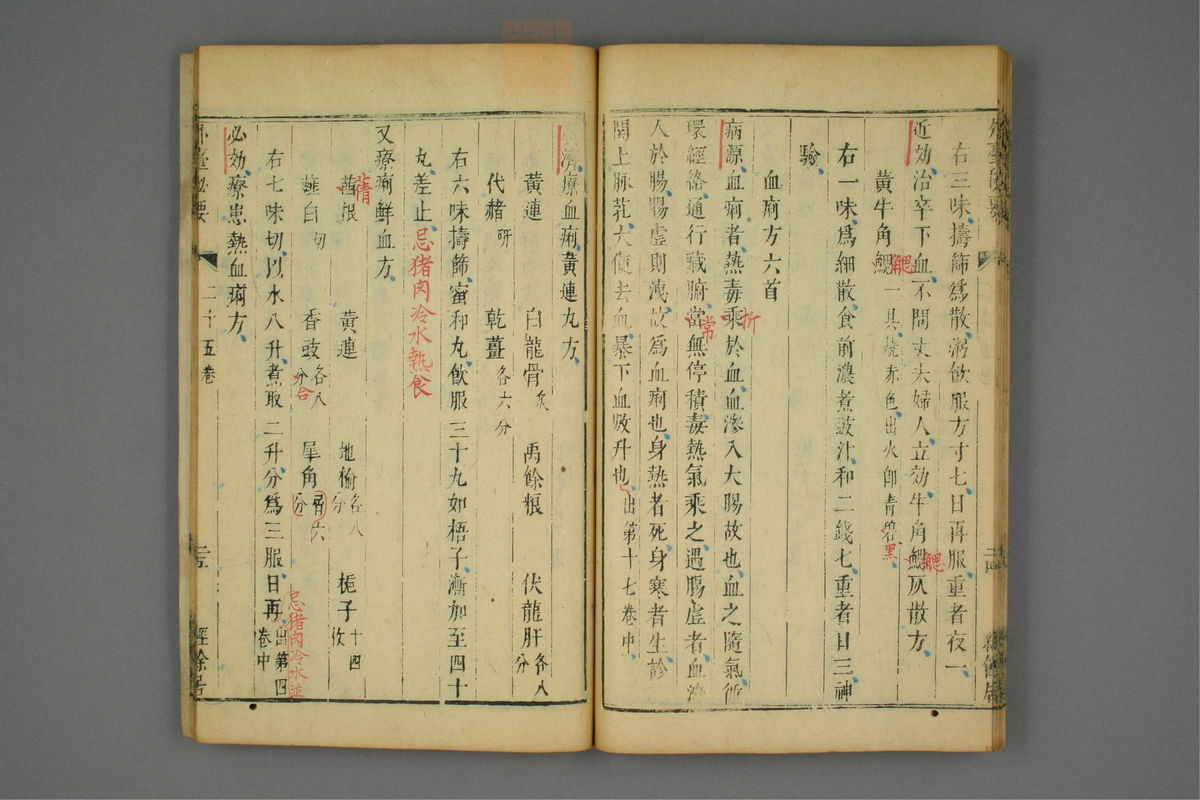 右三味擣篩爲散粥飲服方寸七日再服重者夜一
近効治卒下血不問丈夫婦人立効牛角䚡灰散方
䚡
黄牛角䚡一具燒赤色出火即青碧
䚡
黒
右一味爲細散食前濃煮豉汁和二錢七重者日三神
驗
血痢方六首
病源血痢者熱毒乘於血血滲入大腸故也血之隨氣循
折
環經絡通行藏腑當無停積毒熱氣乘之遇腸虛者血滲
常
人於腸腸虛則洩故爲血痢也身熱者死身寒者生診
関上脉芤大便去血暴下血數升也出第十七卷中
濟療血痢黄連丸方
黄連 白龍骨炙 禹餘粮 伏龍肝各八分
代赭研 乾薑各六分
右六味擣篩蜜和丸飲服三十丸如梧子漸加至四十
丸差止
忌猪肉冷水熱食
又療痢鮮血方
茜根 黄連 地榆各八分 梔子十四枚
薤白切 香豉各八分 犀角屑六分
合
右七味切以水八升煮取二升分爲三服日再出第四卷中
忌猪肉冷水
必効療患熱血痢方
外臺秘要 二十五卷 經餘居